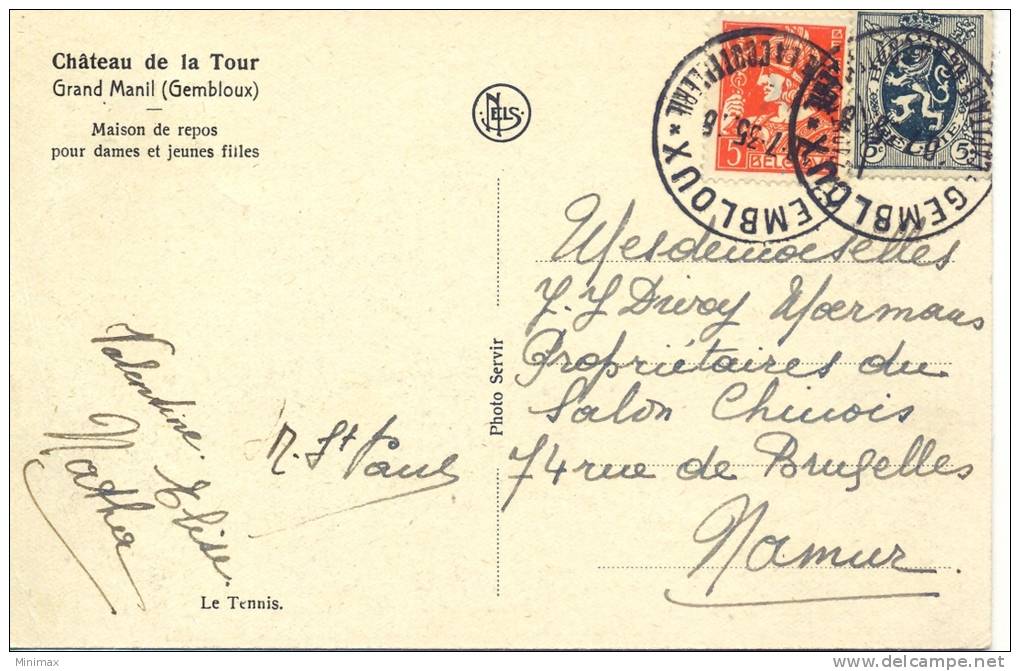 Château de la Tour
Grand Manil (Gembloux)
Maison de repos
pour dames et jeunes filles
NELS
5
BELG
BELGIE
5c 5c
GEMBLOUX
GEMBLOUX
35
Photo Servir
Mesdemoiselles
Y. Y Divoy Moermans
Propriétaires du
Salon Chinois
74 rue de Bruxelles
Namur.
Valentine. Elise.
M. St Paul
Le Tennis.
Minimax
www.delcampe.net